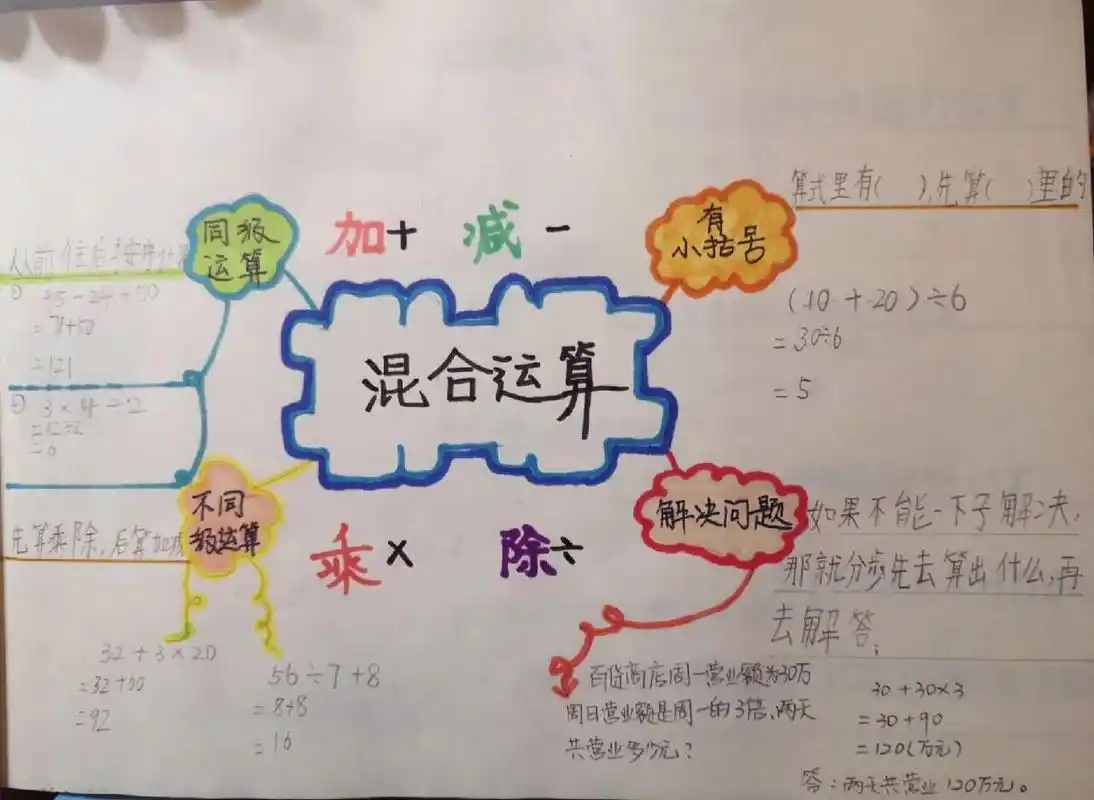 加+ 减-
混合运算
乘× 除÷
同级
运算
从前往后按序计算
①
= 71+50
=121
3×4÷2
=12÷2
=6
不同
级运算
先算乘除,后算加减
32+3×20
=32+60
=92
56÷7+8
=8+8
=16
有
小括号
算式里有( ),先算( )里的
(10+20)÷6
=30÷6
=5
解决问题
如果不能一下子解决,
那就分步先去算出什么,再
去解答;
百货商店周一营业额为30万
周日营业额是周一的3倍,两天
共营业多少元?
30+30×3
=30+90
=120(万元)
答:两天共营业120万元。